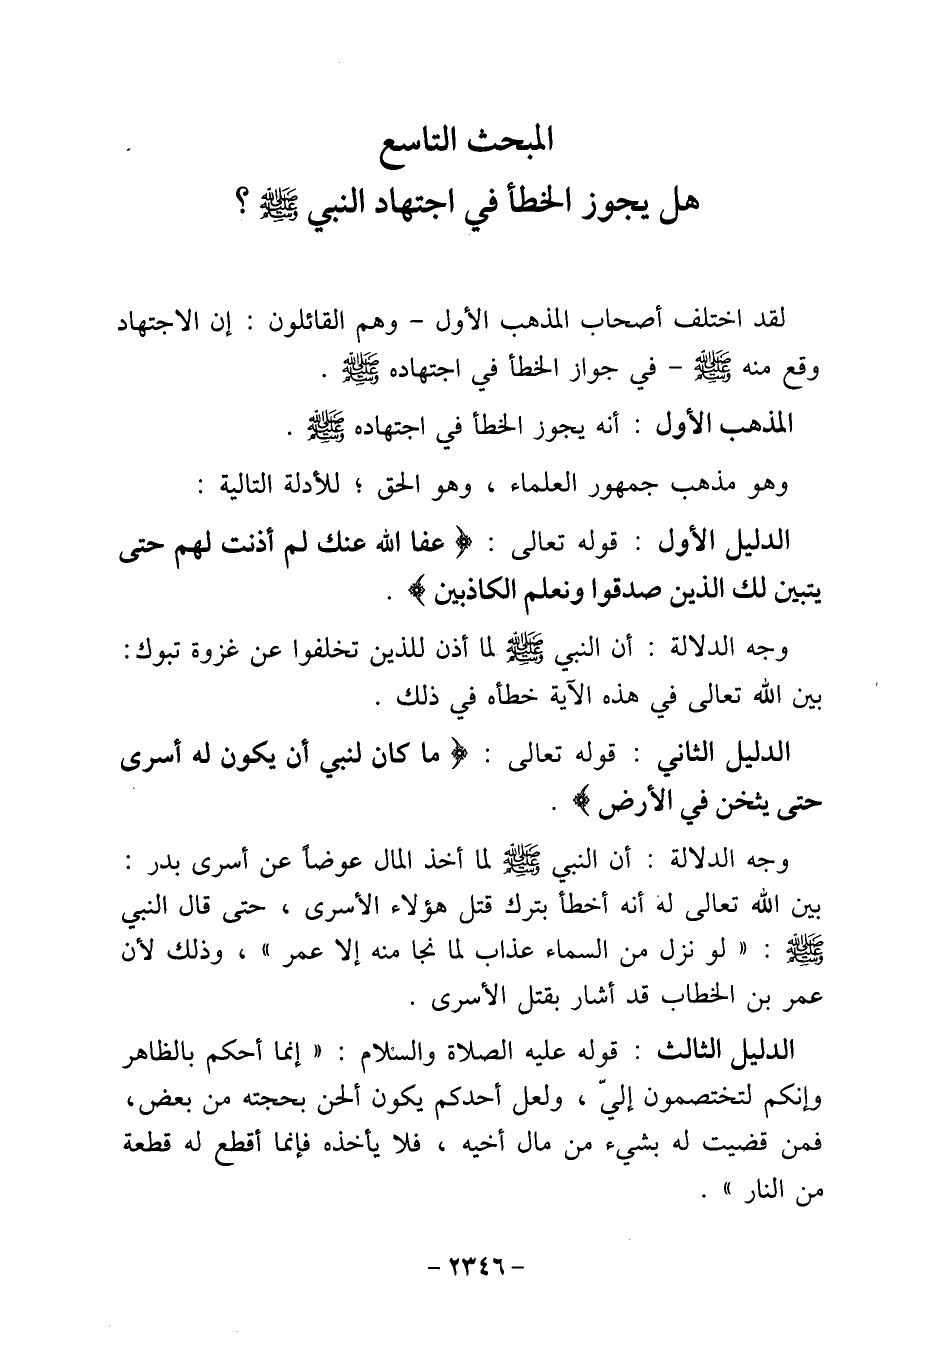 المبحث التاسع
هل يجوز الخطأ في اجتهاد النبي ﷺ ؟
لقد اختلف أصحاب المذهب الأول - وهم القائلون : إن الاجتهاد
وقع منه ﷺ - في جواز الخطأ في اجتهاده ﷺ .
المذهب الأول : أنه يجوز الخطأ في اجتهاده ﷺ .
وهو مذهب جمهور العلماء ، وهو الحق ؛ للأدلة التالية :
الدليل الأول : قوله تعالى : ﴿ عفا الله عنك لم أذنت لهم حتى
يتبين لك الذين صدقوا ونعلم الكاذبين ﴾ .
وجه الدلالة : أن النبي ﷺ لما أذن للذين تخلفوا عن غزوة تبوك:
بين الله تعالى في هذه الآية خطأه في ذلك .
الدليل الثاني : قوله تعالى : ﴿ ما كان لنبي أن يكون له أسرى
حتى يثخن في الأرض ﴾ .
وجه الدلالة : أن النبي ﷺ لما أخذ المال عوضاً عن أسرى بدر :
بين الله تعالى له أنه أخطأ بترك قتل هؤلاء الأسرى ، حتى قال النبي
ﷺ : « لو نزل من السماء عذاب لما نجا منه إلا عمر » ، وذلك لأن
عمر بن الخطاب قد أشار بقتل الأسرى .
الدليل الثالث : قوله عليه الصلاة والسلام : « إنما أحكم بالظاهر
وإنكم لتختصمون إليّ ، ولعل أحدكم يكون ألحن بحجته من بعض،
فمن قضيت له بشيء من مال أخيه ، فلا يأخذه فإنما أقطع له قطعة
من النار » .
- ٢٣٤٦ -